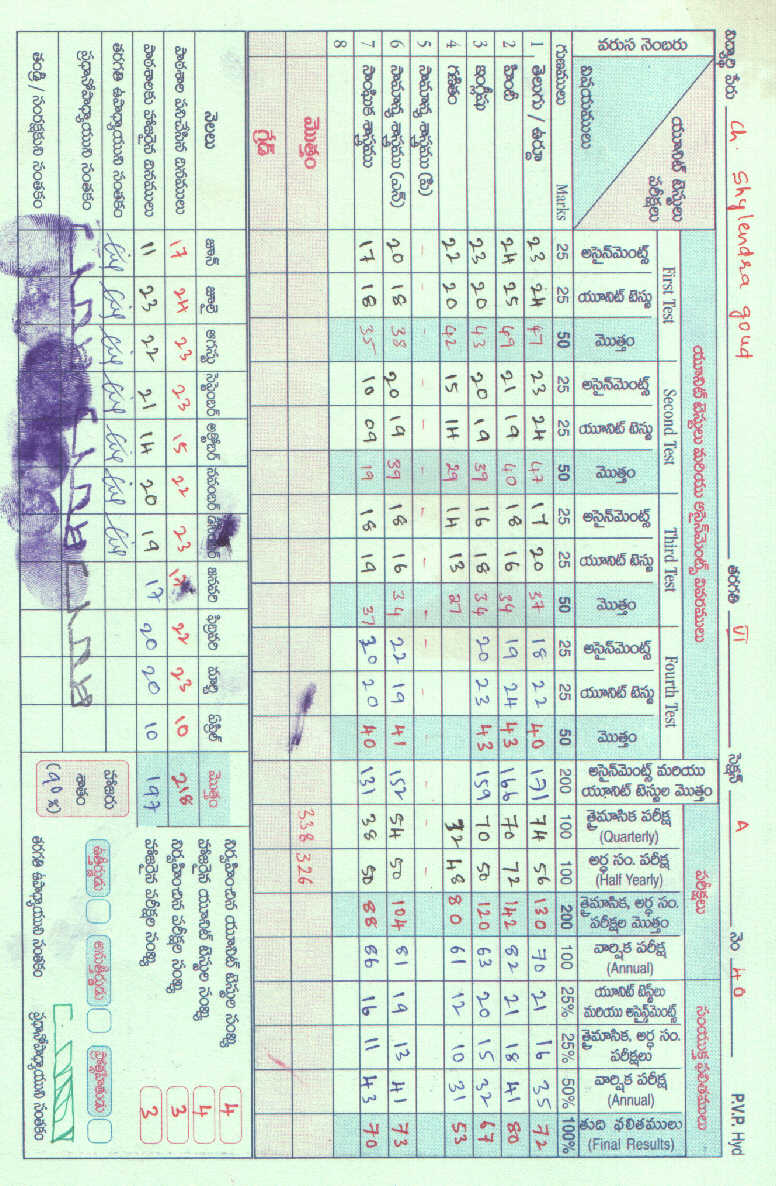 విద్యార్థి పేరు Ch. Shylendra goud తరగతి VI సెక్షన్ A నెం 40 P.V.P. Hyd
వరుస నెంబరు విషయములు యూనిట్ టెస్టులు పరీక్షలు
యూనిట్ టెస్టులు మరియు అసైన్‌మెంట్స్ వివరములు పరీక్షలు సంయుక్త ఫలితములు
First Test Second Test Third Test Fourth Test
అసైన్‌మెంట్స్ యూనిట్ టెస్టు మొత్తం అసైన్‌మెంట్స్ యూనిట్ టెస్టు మొత్తం అసైన్‌మెంట్స్ యూనిట్ టెస్టు మొత్తం అసైన్‌మెంట్స్ యూనిట్ టెస్టు మొత్తం అసైన్‌మెంట్స్ మరియు యూనిట్ టెస్టుల మొత్తం త్రైమాసిక పరీక్ష (Quarterly) అర్ధ సం. పరీక్ష (Half Yearly) త్రైమాసిక, అర్ధ సం. పరీక్షల మొత్తం వార్షిక పరీక్ష (Annual) యూనిట్ టెస్టులు మరియు అసైన్‌మెంట్స్ త్రైమాసిక, అర్ధ సం. పరీక్షలు వార్షిక పరీక్ష (Annual) తుది ఫలితములు (Final Results)
గుణములు Marks 25 25 50 25 25 50 25 25 50 25 25 50 200 100 100 200 100 25% 25% 50% 100%
1 తెలుగు / ఉర్దూ 23 24 47 23 24 47 17 20 37 18 22 40 171 74 56 130 70 21 16 35 72
2 హిందీ 24 25 49 21 19 40 18 16 34 19 24 43 166 70 72 142 82 21 18 41 80
3 ఇంగ్లీషు 23 20 43 20 19 39 16 18 34 20 23 43 159 70 50 120 63 20 15 32 67
4 గణితం 22 20 42 15 14 29 14 13 27 32 48 80 61 12 10 31 53
5 సామాన్య శాస్త్రము (పి) - - - - - - - - - - - -
6 సామాన్య శాస్త్రము (ఎన్) 20 18 38 20 19 39 18 16 34 22 19 41 152 54 50 104 81 19 13 41 73
7 సాంఘిక శాస్త్రము 17 18 35 10 09 19 18 19 37 20 20 40 131 38 50 88 86 16 11 43 70
8
మొత్తం 338 326
గ్రేడ్
నెలలు జూన్ జూలై ఆగస్టు సెప్టెంబర్ అక్టోబర్ నవంబర్ డిసెంబర్ జనవరి ఫిబ్రవరి మార్చి ఏప్రిల్ మొత్తం
పాఠశాల పనిచేసిన దినములు 17 24 23 23 15 22 23 17 22 23 10 218
పాఠశాలకు హాజరైన దినములు 11 23 22 21 14 20 19 17 20 20 10 197
తరగతి ఉపాధ్యాయుని సంతకం
ప్రధానోపాధ్యాయుని సంతకం
తండ్రి / సంరక్షకుని సంతకం
హాజరు శాతం (90%)
నిర్వహించిన యూనిట్ టెస్టుల సంఖ్య 4
హాజరైన యూనిట్ టెస్టుల సంఖ్య 4
నిర్వహించిన పరీక్షల సంఖ్య 3
హాజరైన పరీక్షల సంఖ్య 3
ఉత్తీర్ణుడు అనుత్తీర్ణుడు ప్రోత్సహితుడు
తరగతి ఉపాధ్యాయుని సంతకం ప్రధానోపాధ్యాయుని సంతకం